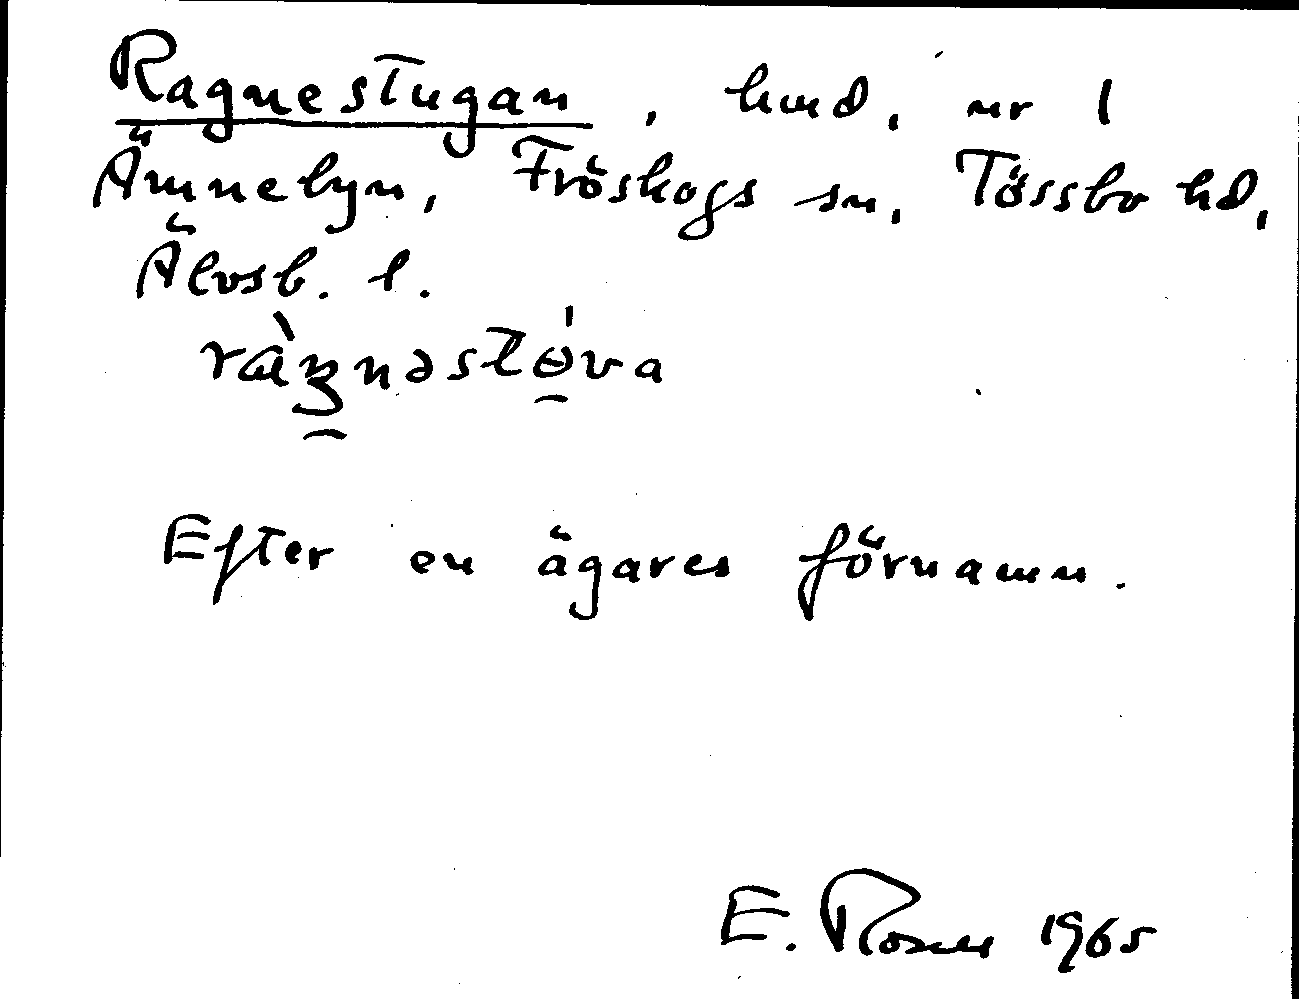 Ragnestugan, hmd, nr 1
Ämnebyn, Fröskogs sn, Tössbo hd,
Älvsb. l.
ràŋnəstɵ́va
Efter en ägares förnamn.
E. Rosell 1965